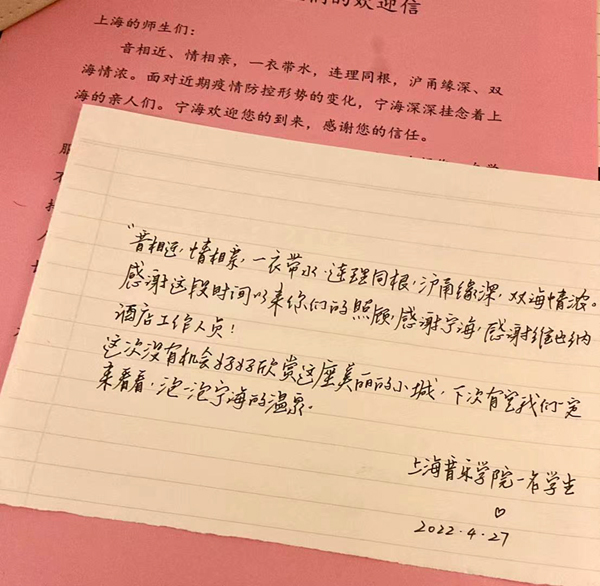 们的欢迎信
上海的师生们：
音相近、情相亲，一衣带水，连理同根，沪甬缘深、双
海情浓。面对近期疫情防控形势的变化，宁海深深挂念着上
海的亲人们。宁海欢迎您的到来，感谢您的信任。
服
不
人
“音相近，情相亲，一衣带水，连理同根，沪甬缘深，双海情浓。
感谢这段时间以来你们的照顾，感谢宁海，感谢维也纳
酒店工作人员！
这次没有机会好好欣赏这座美丽的小城，下次有空我们一定
来看看，泡一泡宁海的温泉。
上海音乐学院一名学生
♡
2022.4.27